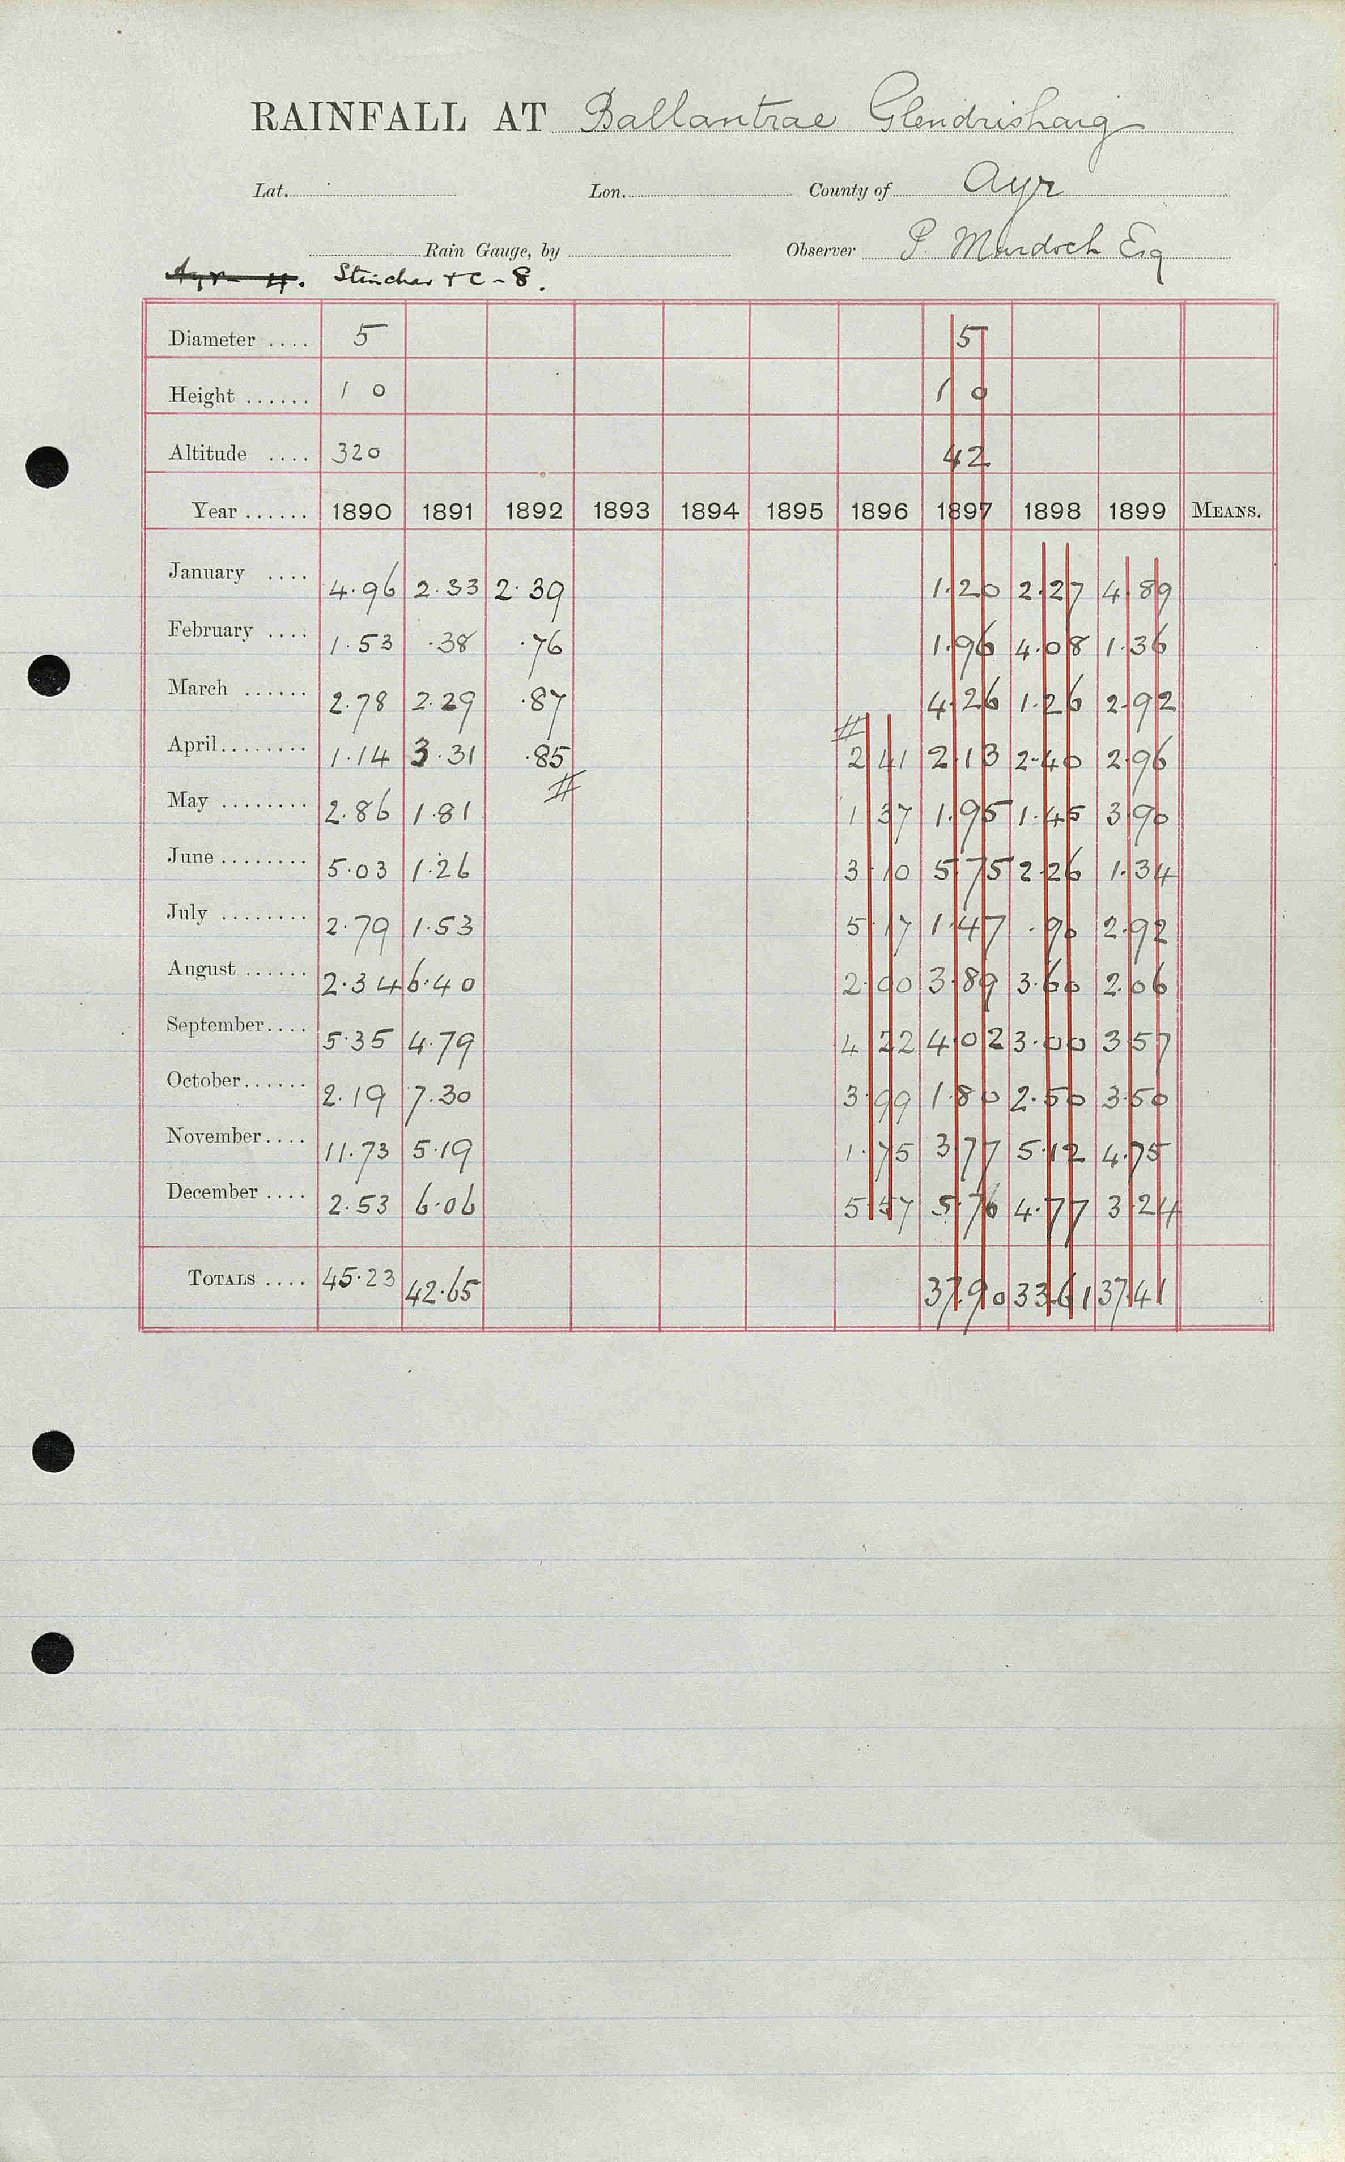 RAINFALL AT Ballantrae Glendrishaig
Lat. Lon. County of Ayr
Rain Gauge, by Observer P. Murdoch Esq
Ayr – 4. Stinchar & C – 8.
Diameter .... 5 5
Height ...... 1 0 1 0
Altitude .... 320 42
Year ...... 1890 1891 1892 1893 1894 1895 1896 1897 1898 1899 MEANS.
January .... 4.96 2.33 2.39 1.20 2.27 4.89
February .... 1.53 .38 .76 1.96 4.08 1.36
March ...... 2.78 2.29 .87 4.26 1.26 2.92
April........ 1.14 3.31 .85 2.41 2.13 2.40 2.96
May ........ 2.86 1.81 1.37 1.95 1.45 3.90
June ........ 5.03 1.26 3.10 5.75 2.26 1.34
July ........ 2.79 1.53 5.17 1.47 .90 2.92
August ...... 2.34 6.40 2.00 3.89 3.60 2.06
September.... 5.35 4.79 4.22 4.02 3.00 3.57
October...... 2.19 7.30 3.99 1.80 2.50 3.50
November.... 11.73 5.19 1.75 3.77 5.12 4.75
December .... 2.53 6.06 5.57 5.76 4.77 3.24
TOTALS .... 45.23 42.65 37.90 33.61 37.41